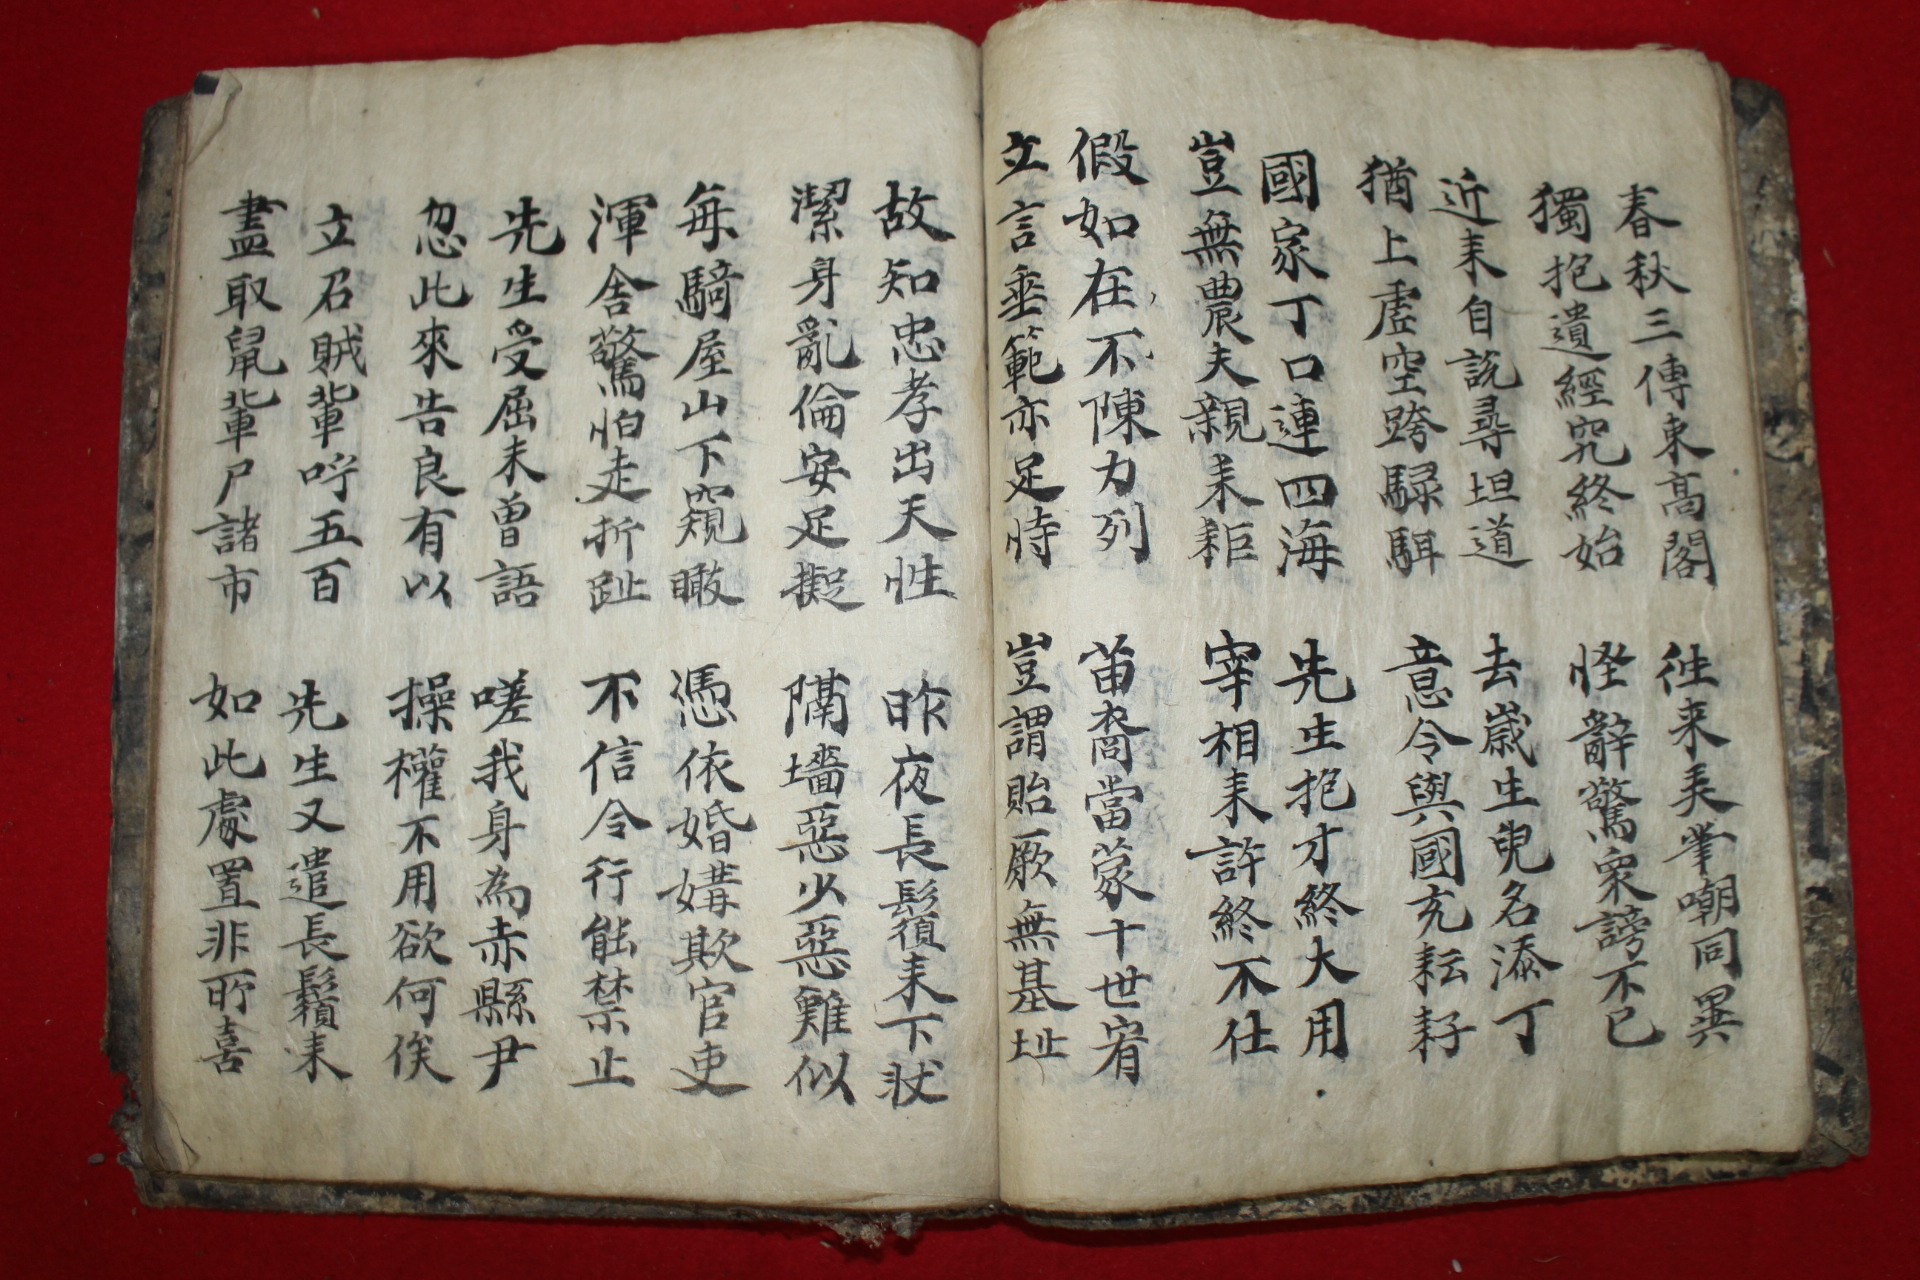 春秋三傳束高閣
獨抱遺經究終始
往来弄筆嘲同異
怪辭驚衆謗不已
近来自説尋坦道
猶上虛空跨騄駬
去歲生兒名添丁
意令與國充耘耔
國家丁口連四海
豈無農夫親耒耟
先生抱才終大用
宰相未許終不仕
假如在不陳力列
立言垂範亦足恃
苗裔當蒙十世宥
豈謂貽厥無基址
故知忠孝出天性
潔身亂倫安足擬
昨夜長鬚来下狀
隔墻惡少惡難似
每騎屋山下窺瞰
渾舍驚怕走折趾
憑依婚媾欺官吏
不信令行能禁止
先生受屈未曾語
忽此來告良有以
嗟我身為赤縣尹
操權不用欲何俟
立召賊輩呼五百
盡取鼠輩尸諸市
先生又遣長鬚来
如此處置非所喜